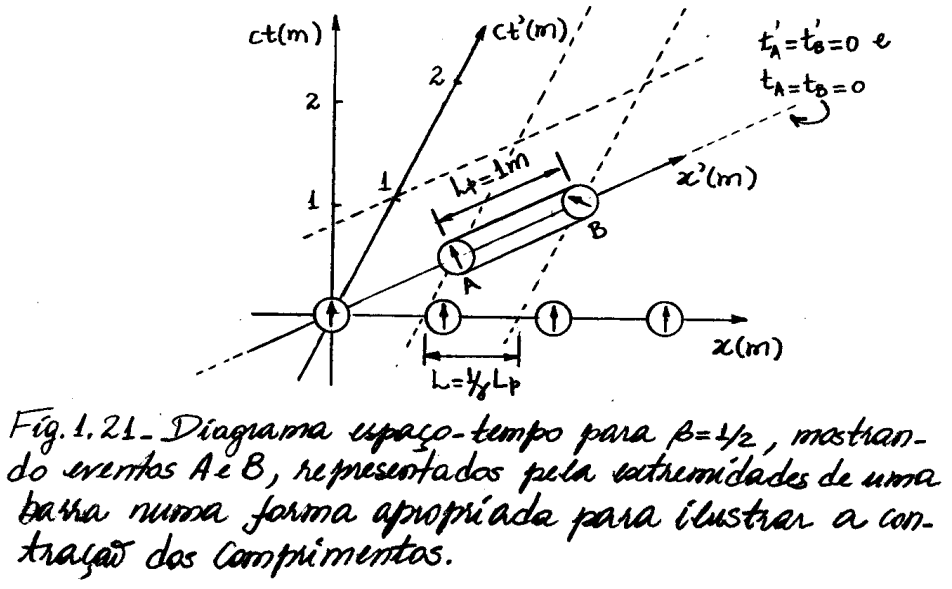 ct(m)
ct'(m)
t'A=t'B=0 e
tA=tB=0
2
2
Lp=1m
1
1
x'(m)
B
A
x(m)
L=1/γ Lp
Fig. 1.21_ Diagrama espaço-tempo para β=1/2, mostran-
do eventos A e B, representados pela extremidades de uma
barra numa forma apropriada para ilustrar a con-
tração dos comprimentos.